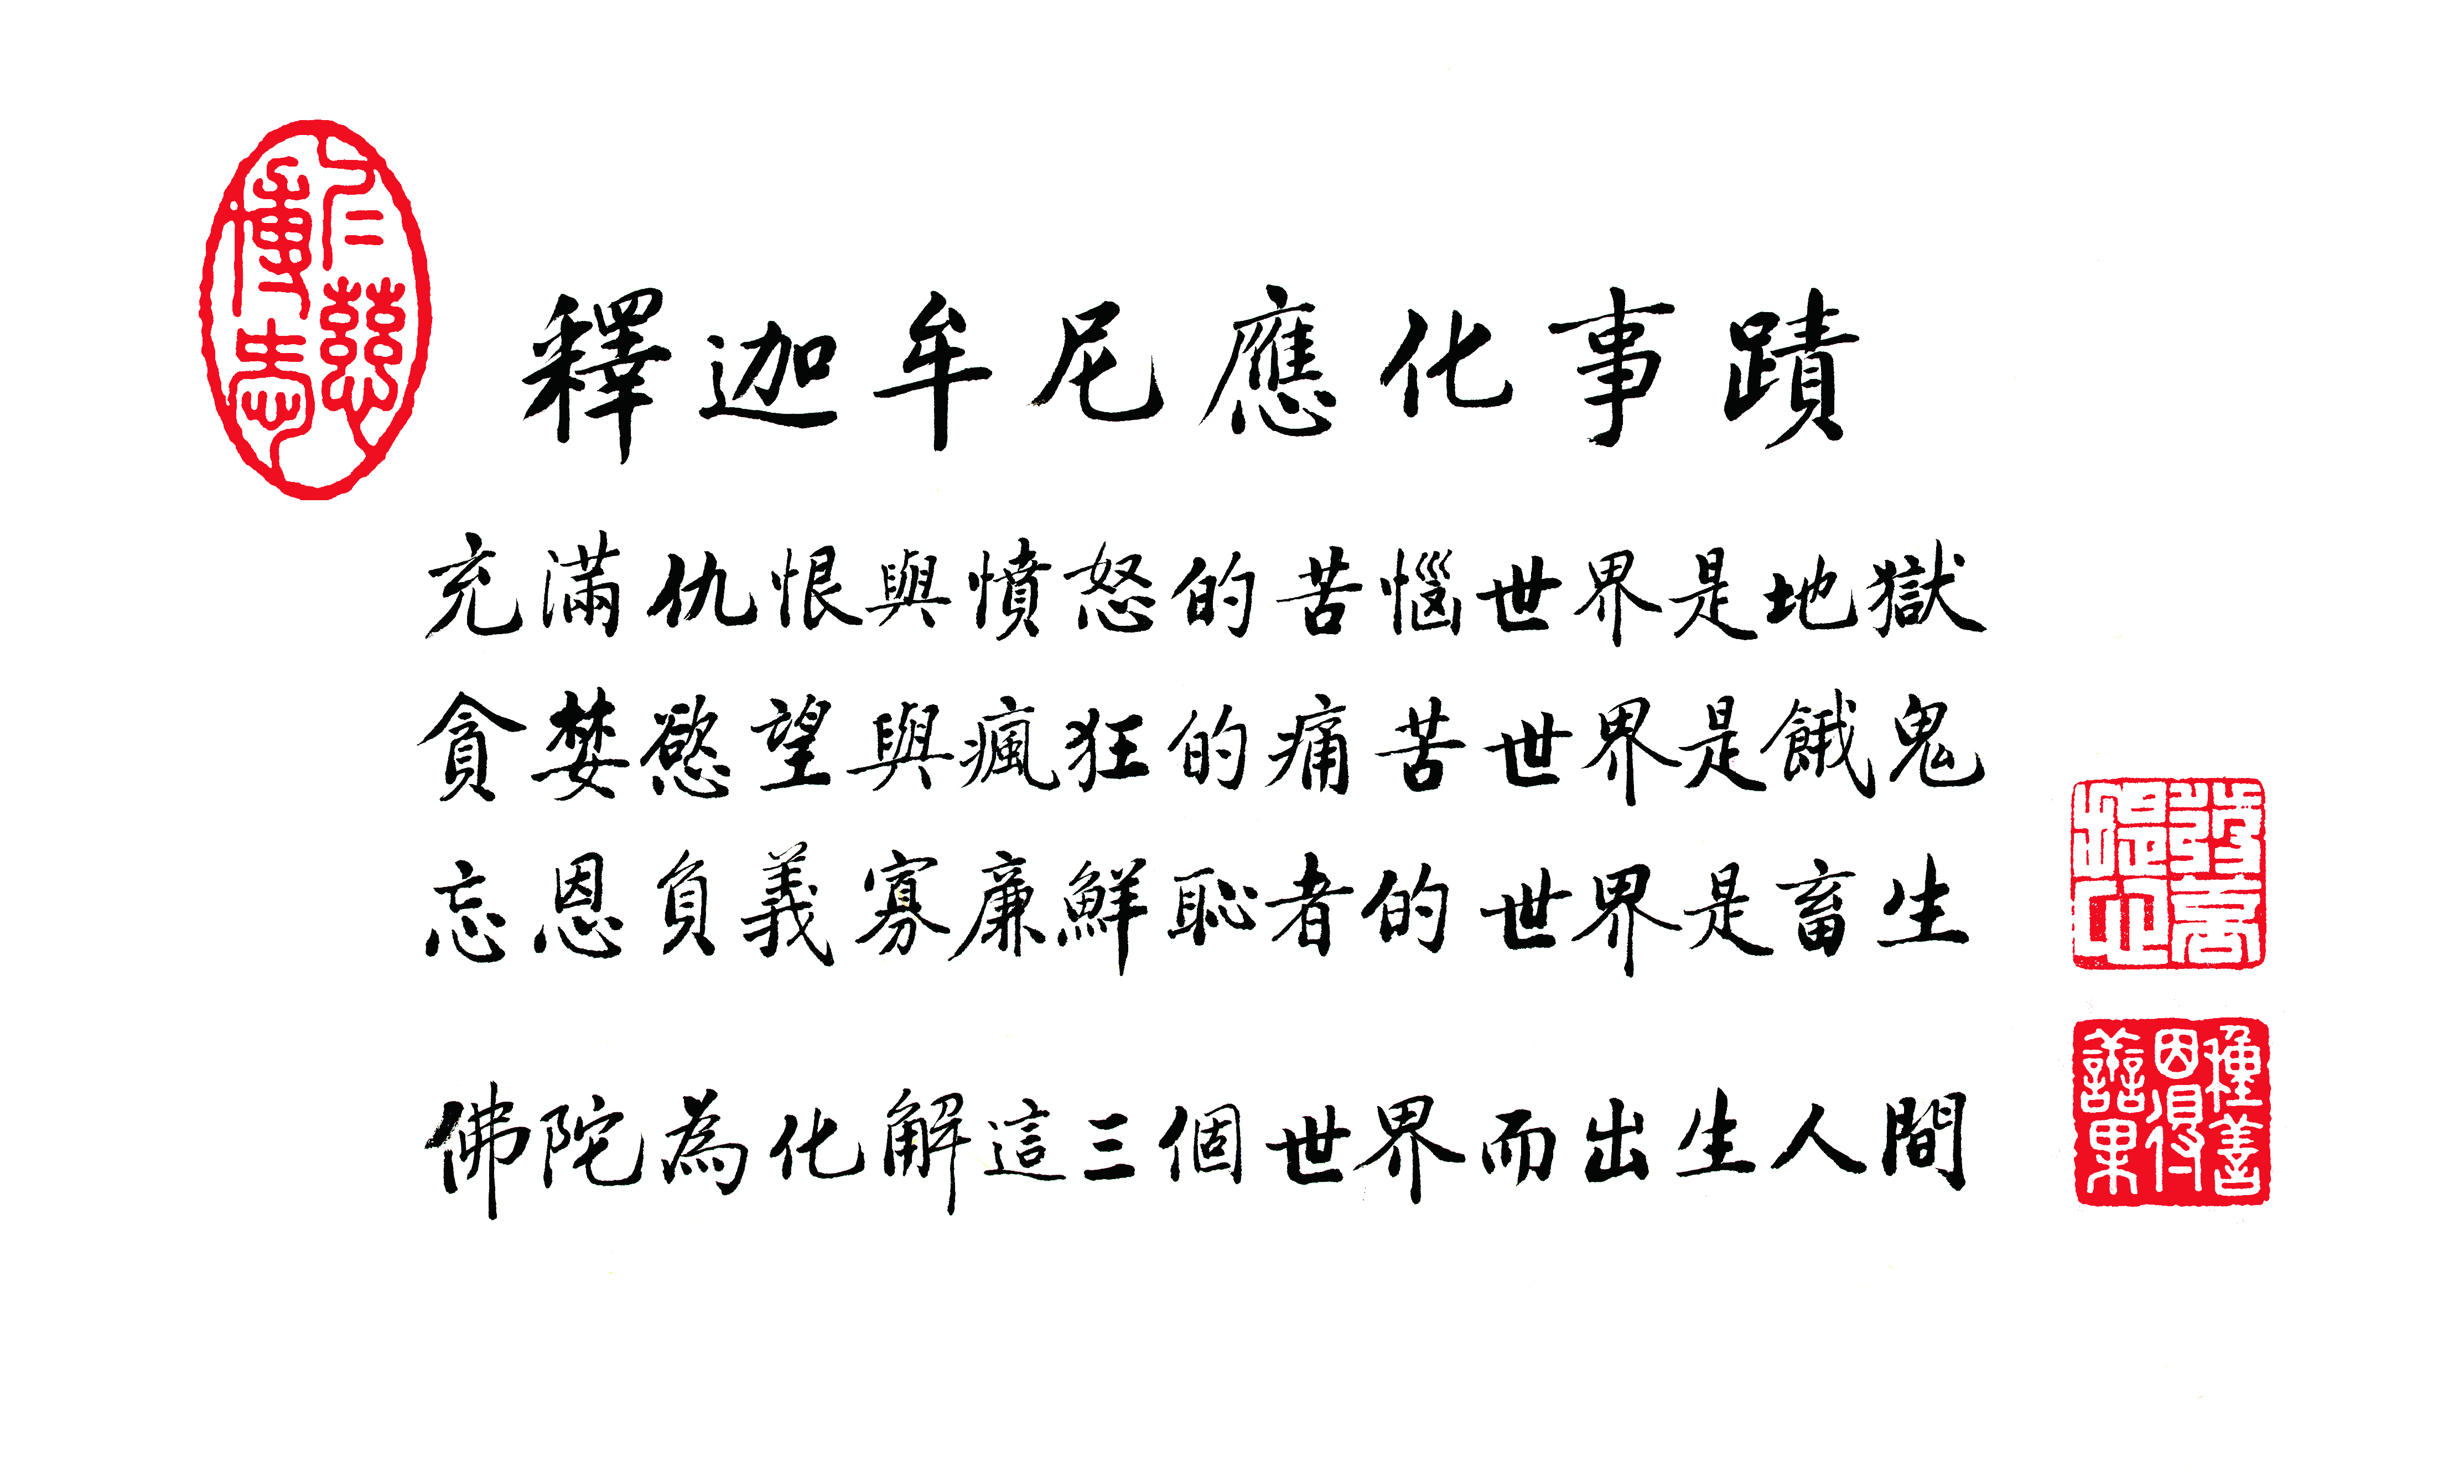 釋迦牟尼應化事蹟
充滿仇恨與憤怒的苦惱世界是地獄
貪婪慾望與瘋狂的痛苦世界是餓鬼
忘恩負義寡廉鮮恥者的世界是畜生
佛陀為化解這三個世界而出生人間
仁慈博愛
種善因得善果